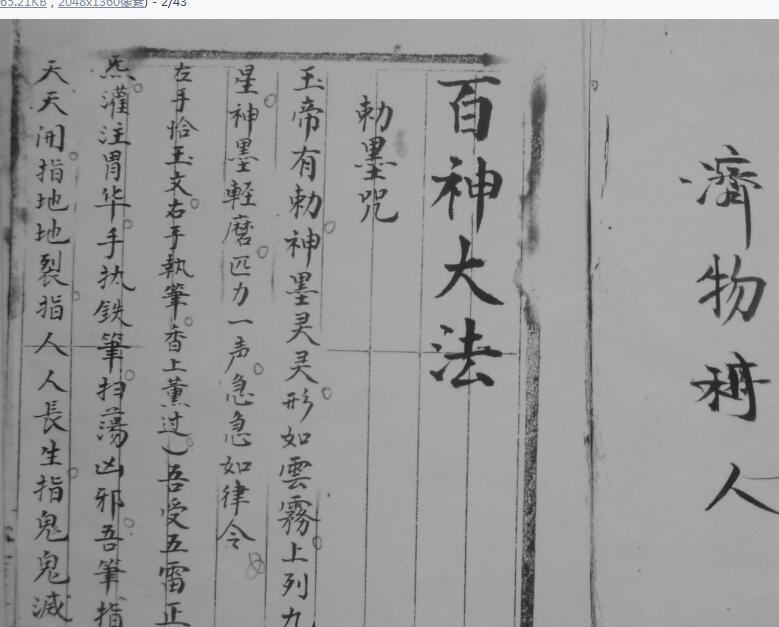 65.21KB , 2048x1360像素) - 2/43
濟物利人
百神大法
勅墨咒
玉帝有勅神墨灵灵形如雲霧上列九
星神墨軽磨匹力一声急急如律令
左手恰玉文右手執筆香上薰过吾受五雷正
炁灌注胃华手执鉄筆扫蕩凶邪吾筆指
天天開指地地裂指人人長生指鬼鬼滅